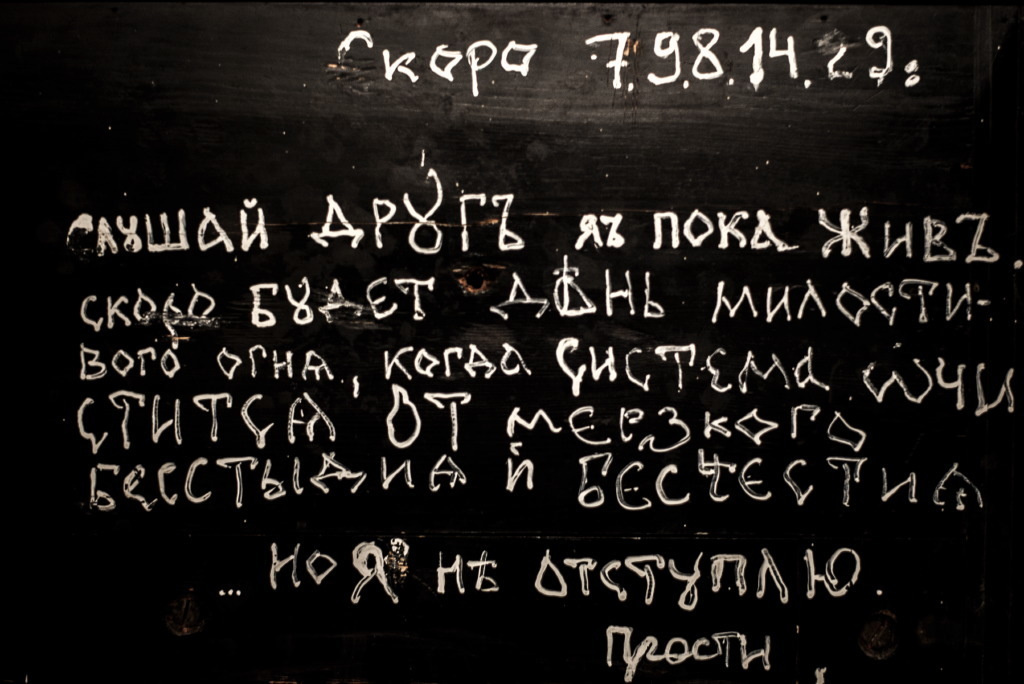 Скоро 7.9.8.14.29:
слꙋшай дрꙋ́гъ яъ пока живъ.
скоро бꙋдет дѣнь милости-
вого огнѧ, когда система ѡчи
ститсѧ от мерзкого
бесстыдиѧ и бесчестиѧ
... но я нѣ отступлю.
Прости